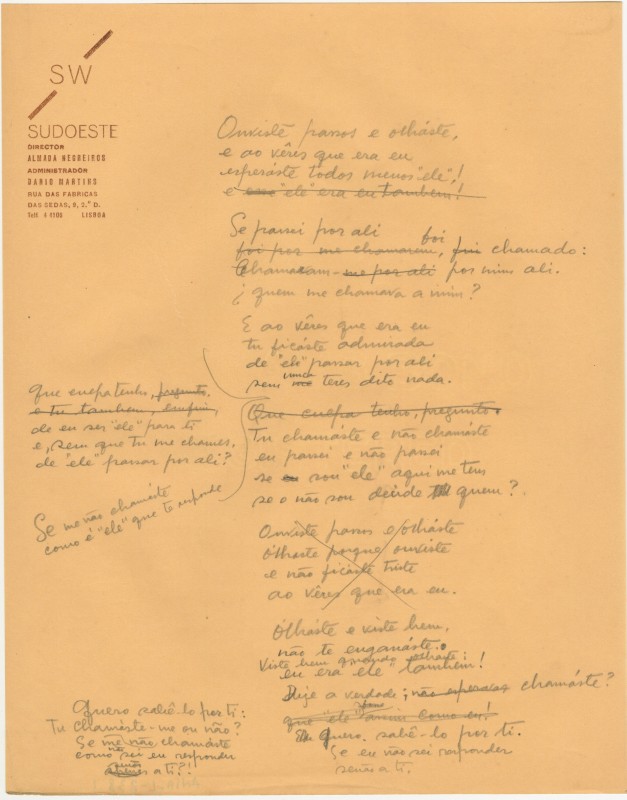 SW
SUDOESTE
DIRECTOR
ALMADA NEGREIROS
ADMINISTRADOR
DARIO MARTINS
RUA DAS FABRICAS
DAS SEDAS, 9, 2.º D.
LISBOA
Ouviste passos e olháste,
e ao vêres que era eu
esperáste todos menos "ele"!
e "ele" era eu tambem!
Se passei por ali
foi
foi por me chamarem, fui chamado:
Chamavam-me por ali por mim ali.
¿ quem me chamava a mim?
E ao vêres que era eu
tu ficáste admirada
de "ele" passar por ali
nunca
sem teres dito nada.
Que culpa tenho, pregunto.
Tu chamáste e não chamáste
eu passei e não passei
se sou "ele" aqui me tens
se o não sou decide quem?
que culpa tenho, pregunto.
e tu tambem, emfim,
de eu ser "ele" para ti
e, sem que tu me chames,
de "ele" passar por ali?
Se me não chamáste
como é "ele" que te responde
Ouviste passos e olháste
ólhaste porque ouviste
e não ficáste triste
ao vêres que era eu.
Ólháste e viste bem,
não te enganáste.
Viste bem quando olhaste:
eu era "ele" tambem!
Dize a verdade; não esperavas chamáste?
que "ele" assim como eu!
Quero sabê-lo por ti.
Se eu não sei responder
senão a ti.
Quero sabê-lo por ti:
Tu chamáste-me ou não?
Se me não chamáste
como não sei eu responder
senão
a ti?!